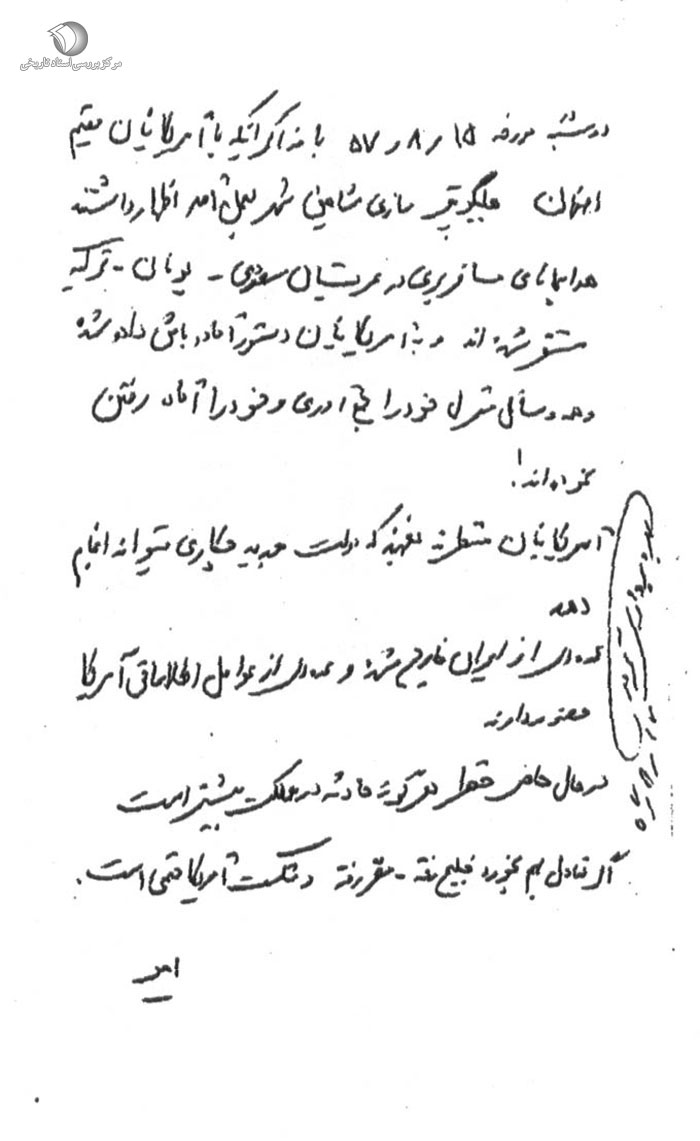 مرکز بررسی اسناد تاریخی
دوشنبه مورخه ۱۵ر۸ر۵۷ با مذاکراتیکه با آمریکائیان مقیم
اصفهان هلیکوپتر سازی شاهین شهر بعمل آمد اظهار داشتند
هواپیماهای مسافربری در عربستان سعودی - یونان - ترکیه
مستقر شده‌اند و به امریکائیان دستور آماده باش داده شده
و همه وسائل منزل خود را جمع آوری و خود را آماده رفتن
نموده‌اند!
آمریکائیان منتظرند بفهمند که دولت جدید چکاری میتواند انجام
دهد
عده‌ای از ایران خارج شده و عده‌ای از عوامل اطلاعاتی آمریکا
حضور دارند
در حال حاضر خطر هرگونه حادثه در مملکت بیشتر است
اگر تعادل بهم بخورد خلیج رفته - رفته و شکست آمریکا حتمی است.